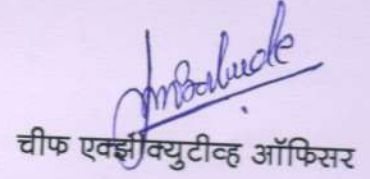 चीफ एक्झीक्युटीव्ह ऑफिसर